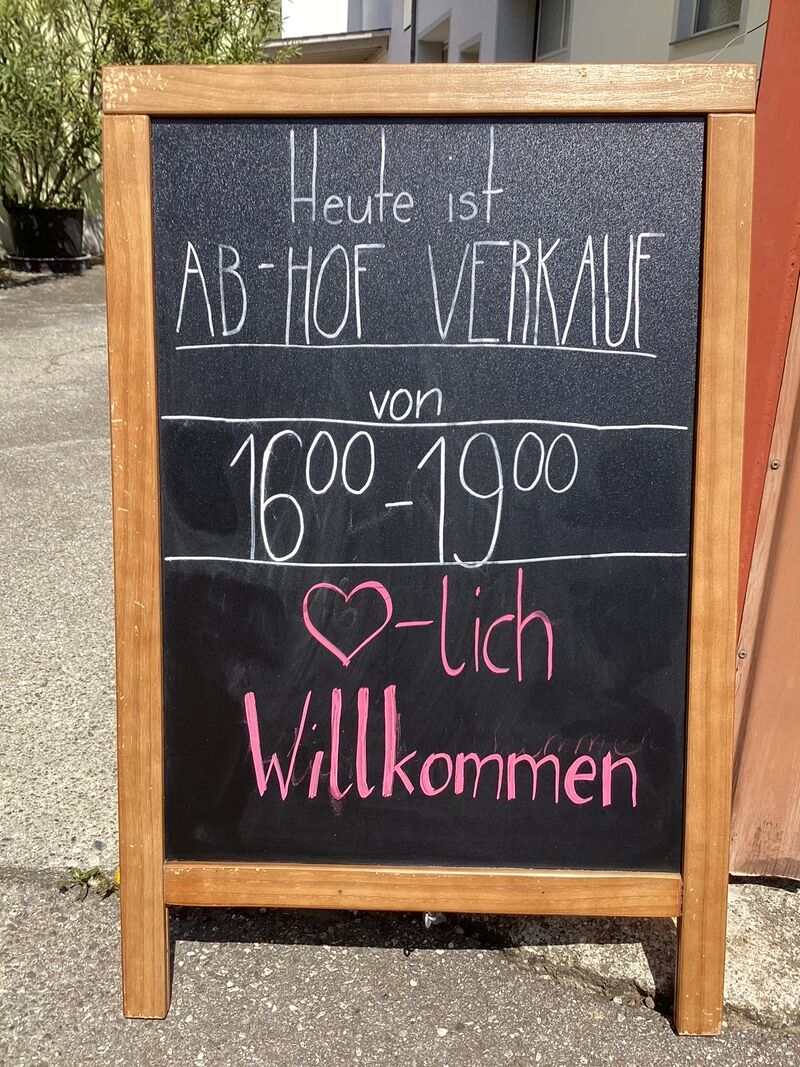 Heute ist
AB-HOF VERKAUF
von
16⁰⁰-19⁰⁰
♡-lich
Willkommen